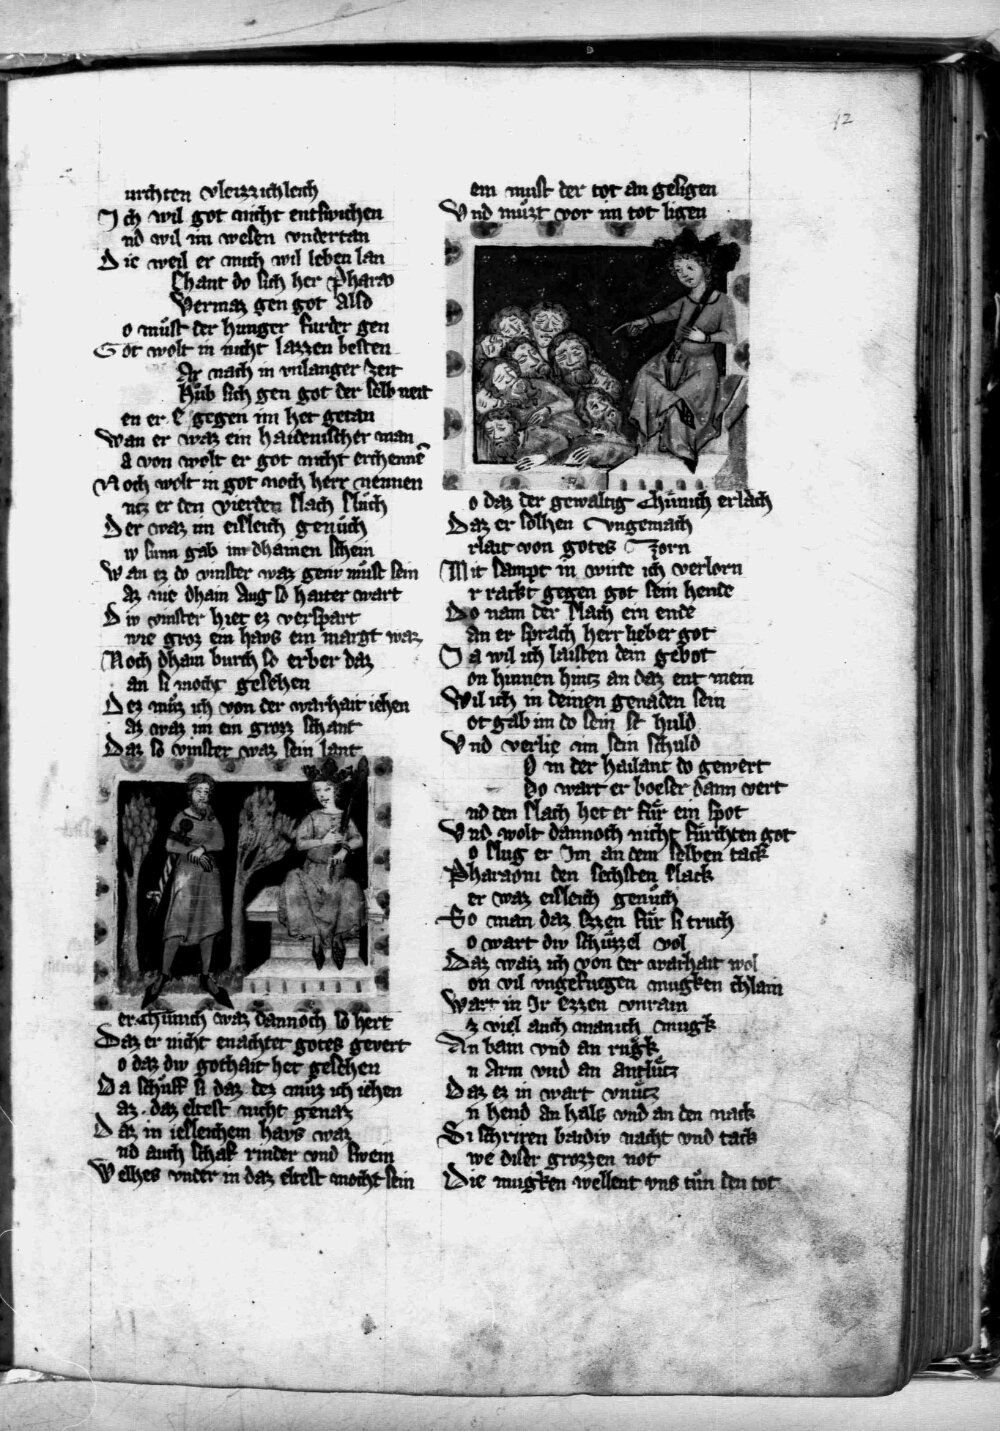 12
urchten vleizzichleich
Ich wil got nicht entwichen
nd wil im wesen vndertan
Die weil er mich wil leben lan
Chant do sich her Pharao
Vermaz gen got Also
o must der hunger furder gen
Got wolt in nicht lazzen besten
Ar nach in vnlanger zeit
Hůb sich gen got der selb neit
en er E gegen im het getan
Wan er waz ein haidenischer man
a von wolt er got nicht erchennē
Noch wolt in got noch herr nennen
ntz er den vierden slach slůch
Der waz im eisleich genůch
w sunn gab im dhainen schein
Wan ez do vinster waz genv můst sein
az nie dhain Aug so haiter wart
Div vinster hiet ez verspart
wie groz ein havs ein margt waz
Noch dhain burch so erber daz
an si mocht gesehen
Dez můz ich von der warhait iehen
az waz im ein grozz schant
Daz so vinster waz sein lant
er Chünich waz dannoch so hert
Daz er nicht enachtet gotes gevert
o daz div gothait het gesehen
Da schůff si daz dez můz ich iehen
az daz eltest nicht genaz
Daz in iesleichem havs waz
nd auch schaf rinder vnd swein
Welhes vnder in daz eltest mocht sein
em must der tot an gesigen
Vnd můzt vor im tot ligen
o daz der gewaltig Chünich ersach
Daz er solhen Vngemach
rlait von gotes Zorn
Mit sampt in wirde ich verlorn
r rackt gegen got sein hende
Do nam der slach ein ende
an er sprach herr lieber got
Ja wil ich laisten dein gebot
on hinnen hintz an daz ent mein
Wil ich in deinen genaden sein
ot gab im do sein st huld
Vnd verlie im sein schuld
O in der hailant do gewert
Do wart er boeser dann vert
nd den slach het er für ein spot
Vnd wolt dannoch nicht fürchten got
o slug er Im an dem selben tack
Pharaoni den sechsten slack
er waz eisleich genůch
So man daz ezzen für si truch
o wart div schüzzel vol
Daz waiz ich von der warhait wol
on vil vngefuegen mugken chlain
Wart in Ir ezzen vnrain
z viel auch manich mugk
An bain vnd an rugk
n Arm vnd an antlütz
Daz ez in wart vnütz
n hend an hals vnd an den nack
Si schriren baidiv nacht vnd tack
we diser grozzen not
Die mugken wellent vns tůn den tot